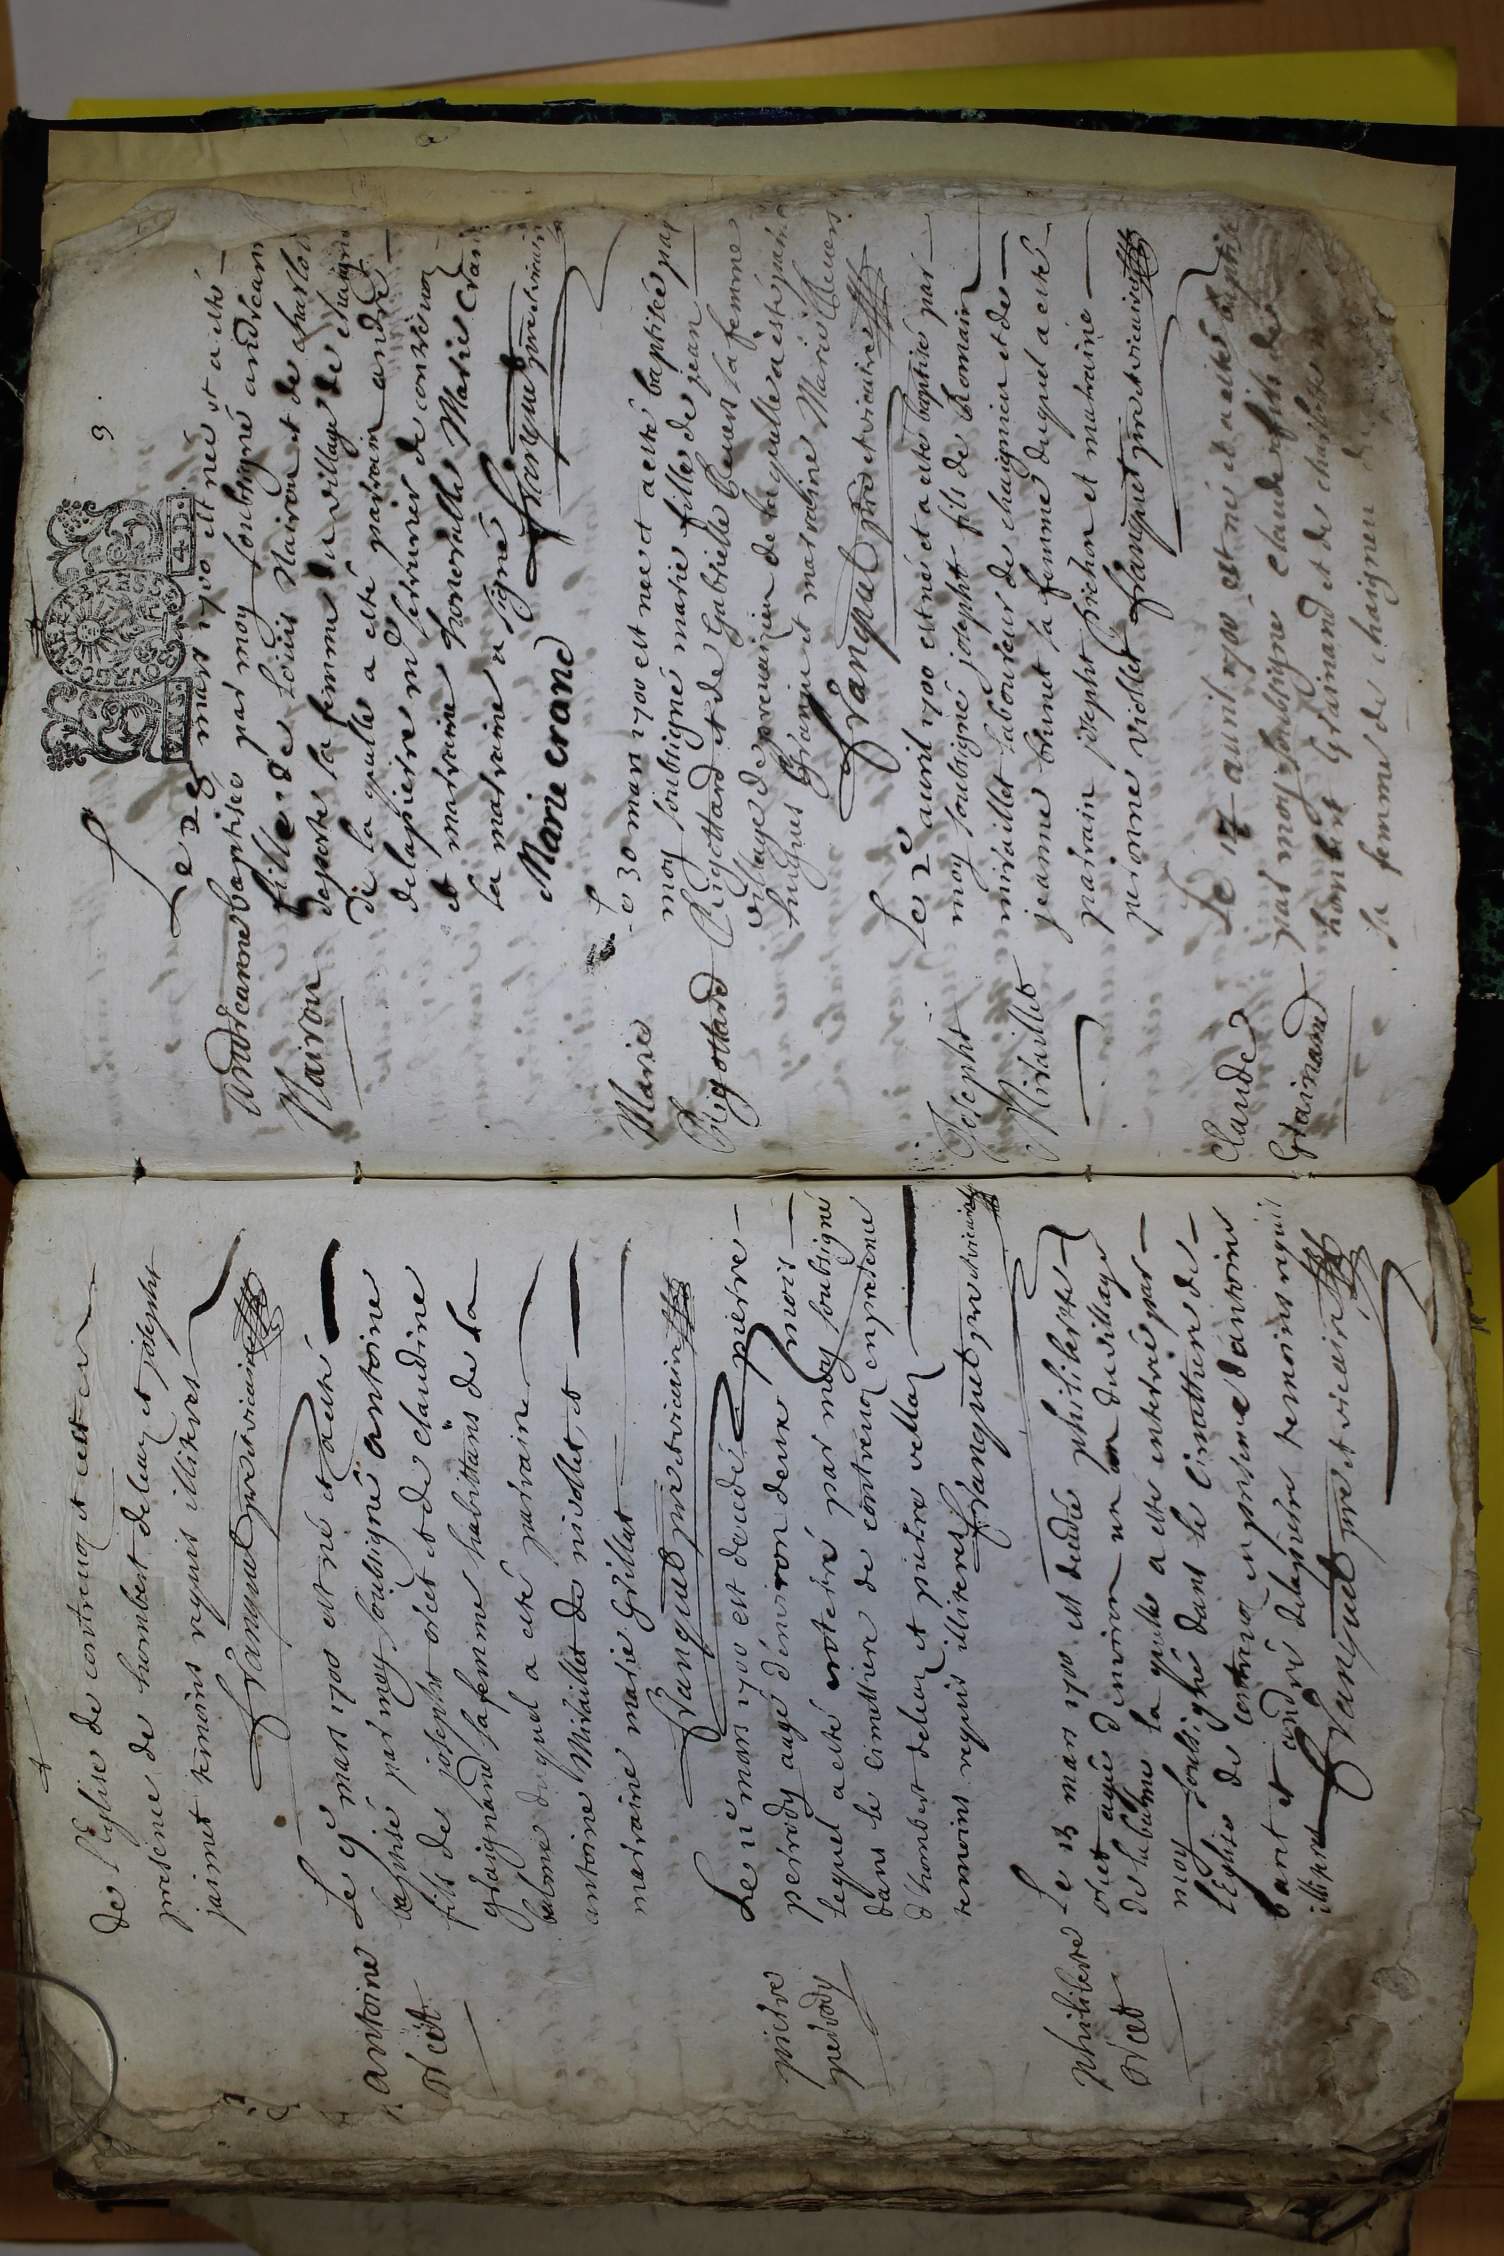 de l'Eglise de contrevoz et cest en
presence de humbert deleuz et joseph
jaimet temoins requis illiteres
franquet pre et vicaire
antoine
oriet
Le 9e mars 1700 est né et a esté
baptisé par moy soubsigné antoine
fils de joseph oriet et de claudine
graignand sa femme habittans de la
balme duquel a esté parrain
antoine Miraillet de niollet et
marraine marie Grillat
franquet pre et vicaire
pierre
perrody
Le 11e mars 1700 est decedé pierre
perrody aagé d'environ deux mois
lequel a esté enterré par moy soubsigné
dans le cimettiere de contrevoz en presence
d'honbert deleuz et pierre vettaz
temoins requis illiteres franquet pre et vicaire
philiberte
oriet
Le 13 mars 1700 est decedée philiberte
oriet agée d'environ un an du village
de la balme la quelle a esté enterrée par
moy soubsigné dans le cimettiere de
l'Eglise de contrevoz en presence d'antoine
bant et andré delapierre temoins requis
illiteres franquet pre et vicaire
9
Le 28 mars 1700 est née et a esté
andréanne
Mairon
baptisée par moy soubsigné andréanne
fille de Louis Mairon et de charlotte
deporte sa femme du village de chaignieu
de la quelle a esté parrain andré
delapierre md serrurier de contrevoz
et marraine honorable Marie Crand
la marraine a signé
Marie crand franquet pre et vicaire
Marie
Rigottard
Le 30 mars 1700 est née et a esté baptisée par
moy soubsigné marie fille de jean
Rigottard et de Gabrielle Cuers sa femme
village de preveizieu de laquelle a esté parrain
hugues Grange et marraine Marie Cuers
franquet pre et vicaire
Joseph
Miraillet
Le 2e auril 1700 est né et a esté baptisé par
moy soubsigné joseph fils de Romain
miraillet laboureur de chaignieu et de
jeanne brunet sa femme duquel a esté
parrain joseph prichon et marraine
peronne viollet franquet pre et vicaire
Claude
Grainand
Le 17 auril 1700 est né et a esté baptisé
par moy soubsigné claude fils de
honbert Grainand et de charlotte
sa femme de chaignieu